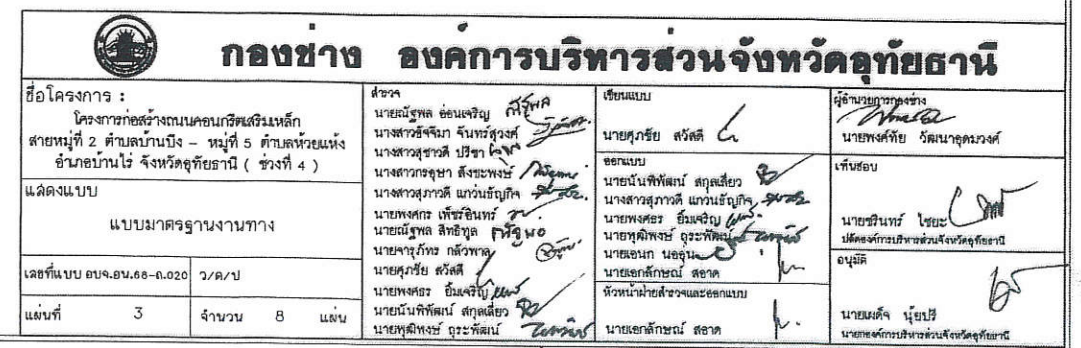 กองช่าง องค์การบริหารส่วนจังหวัดอุทัยธานี
ชื่อโครงการ :
โครงการก่อสร้างถนนคอนกรีตเสริมเหล็ก
สายหมู่ที่ 2 ตำบลบ้านบึง – หมู่ที่ 5 ตำบลห้วยแห้ง
อำเภอบ้านไร่ จังหวัดอุทัยธานี ( ช่วงที่ 4 )
แสดงแบบ
แบบมาตรฐานงานทาง
เลขที่แบบ อบจ.อน.68-ถ.020 ว/ด/ป
แผ่นที่ 3 จำนวน 8 แผ่น
สำรวจ
นายณัฐพล อ่อนเจริญ
นางสาวอัจจิมา จันทร์สุวงศ์
นางสาวสุชาวดี ปรีชา
นางสาวกรอุษา สังชะพงษ์
นางสาวสุภาวดี แกว่นธัญกิจ
นายพงศกร เพ็ชร์อินทร์
นายณัฐพล สิทธิทูล
นายจารุภัทร กลัวพาล
นายศุภชัย สวัสดี
นายพงศธร อิ้มเจริญ
นายนันพิพัฒน์ สกุลเสี่ยว
นายพุฒิพงษ์ ถุระพัฒน์
เขียนแบบ
นายศุภชัย สวัสดี
ออกแบบ
นายนันพิพัฒน์ สกุลเสี่ยว
นางสาวสุภาวดี แกว่นธัญกิจ
นายพงศธร อิ้มเจริญ
นายพุฒิพงษ์ ถุระพัฒน์
นายเอนก
นายเอกลักษณ์ สอาด
หัวหน้าฝ่ายสำรวจและออกแบบ
นายเอกลักษณ์ สอาด
ผู้อำนวยการกองช่าง
นายพงศ์ทัย วัฒนาอุดมวงศ์
เห็นชอบ
นายชรินทร์ ไชยะ
ปลัดองค์การบริหารส่วนจังหวัดอุทัยธานี
อนุมัติ
นายเผด็จ นุ้ยปรี
นายกองค์การบริหารส่วนจังหวัดอุทัยธานี